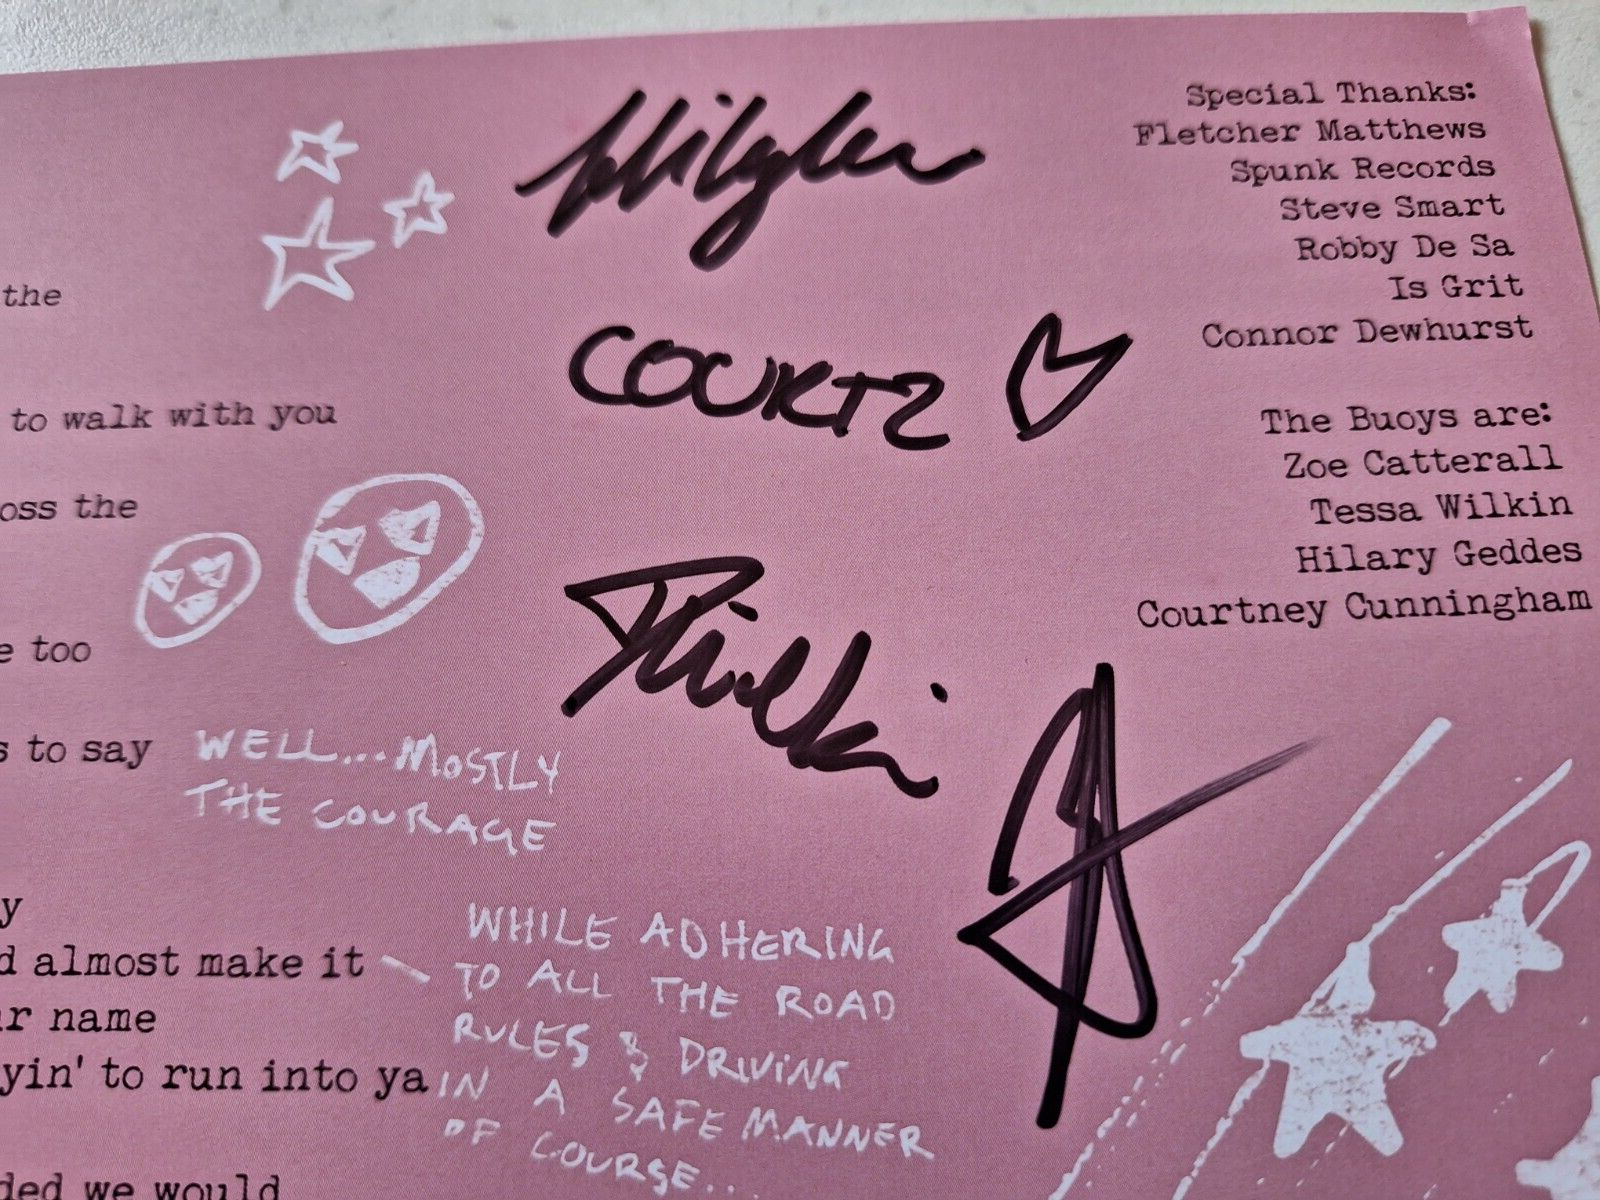 the
to walk with you
oss the
e too
s to say
WELL...MOSTLY
THE COURAGE
y
d almost make it
ur name
yin' to run into ya
WHILE ADHERING
TO ALL THE ROAD
RULES & DRIVING
IN A SAFE MANNER
OF COURSE...
ded we would
COURTZ
Special Thanks:
Fletcher Matthews
Spunk Records
Steve Smart
Robby De Sa
Is Grit
Connor Dewhurst
The Buoys are:
Zoe Catterall
Tessa Wilkin
Hilary Geddes
Courtney Cunningham